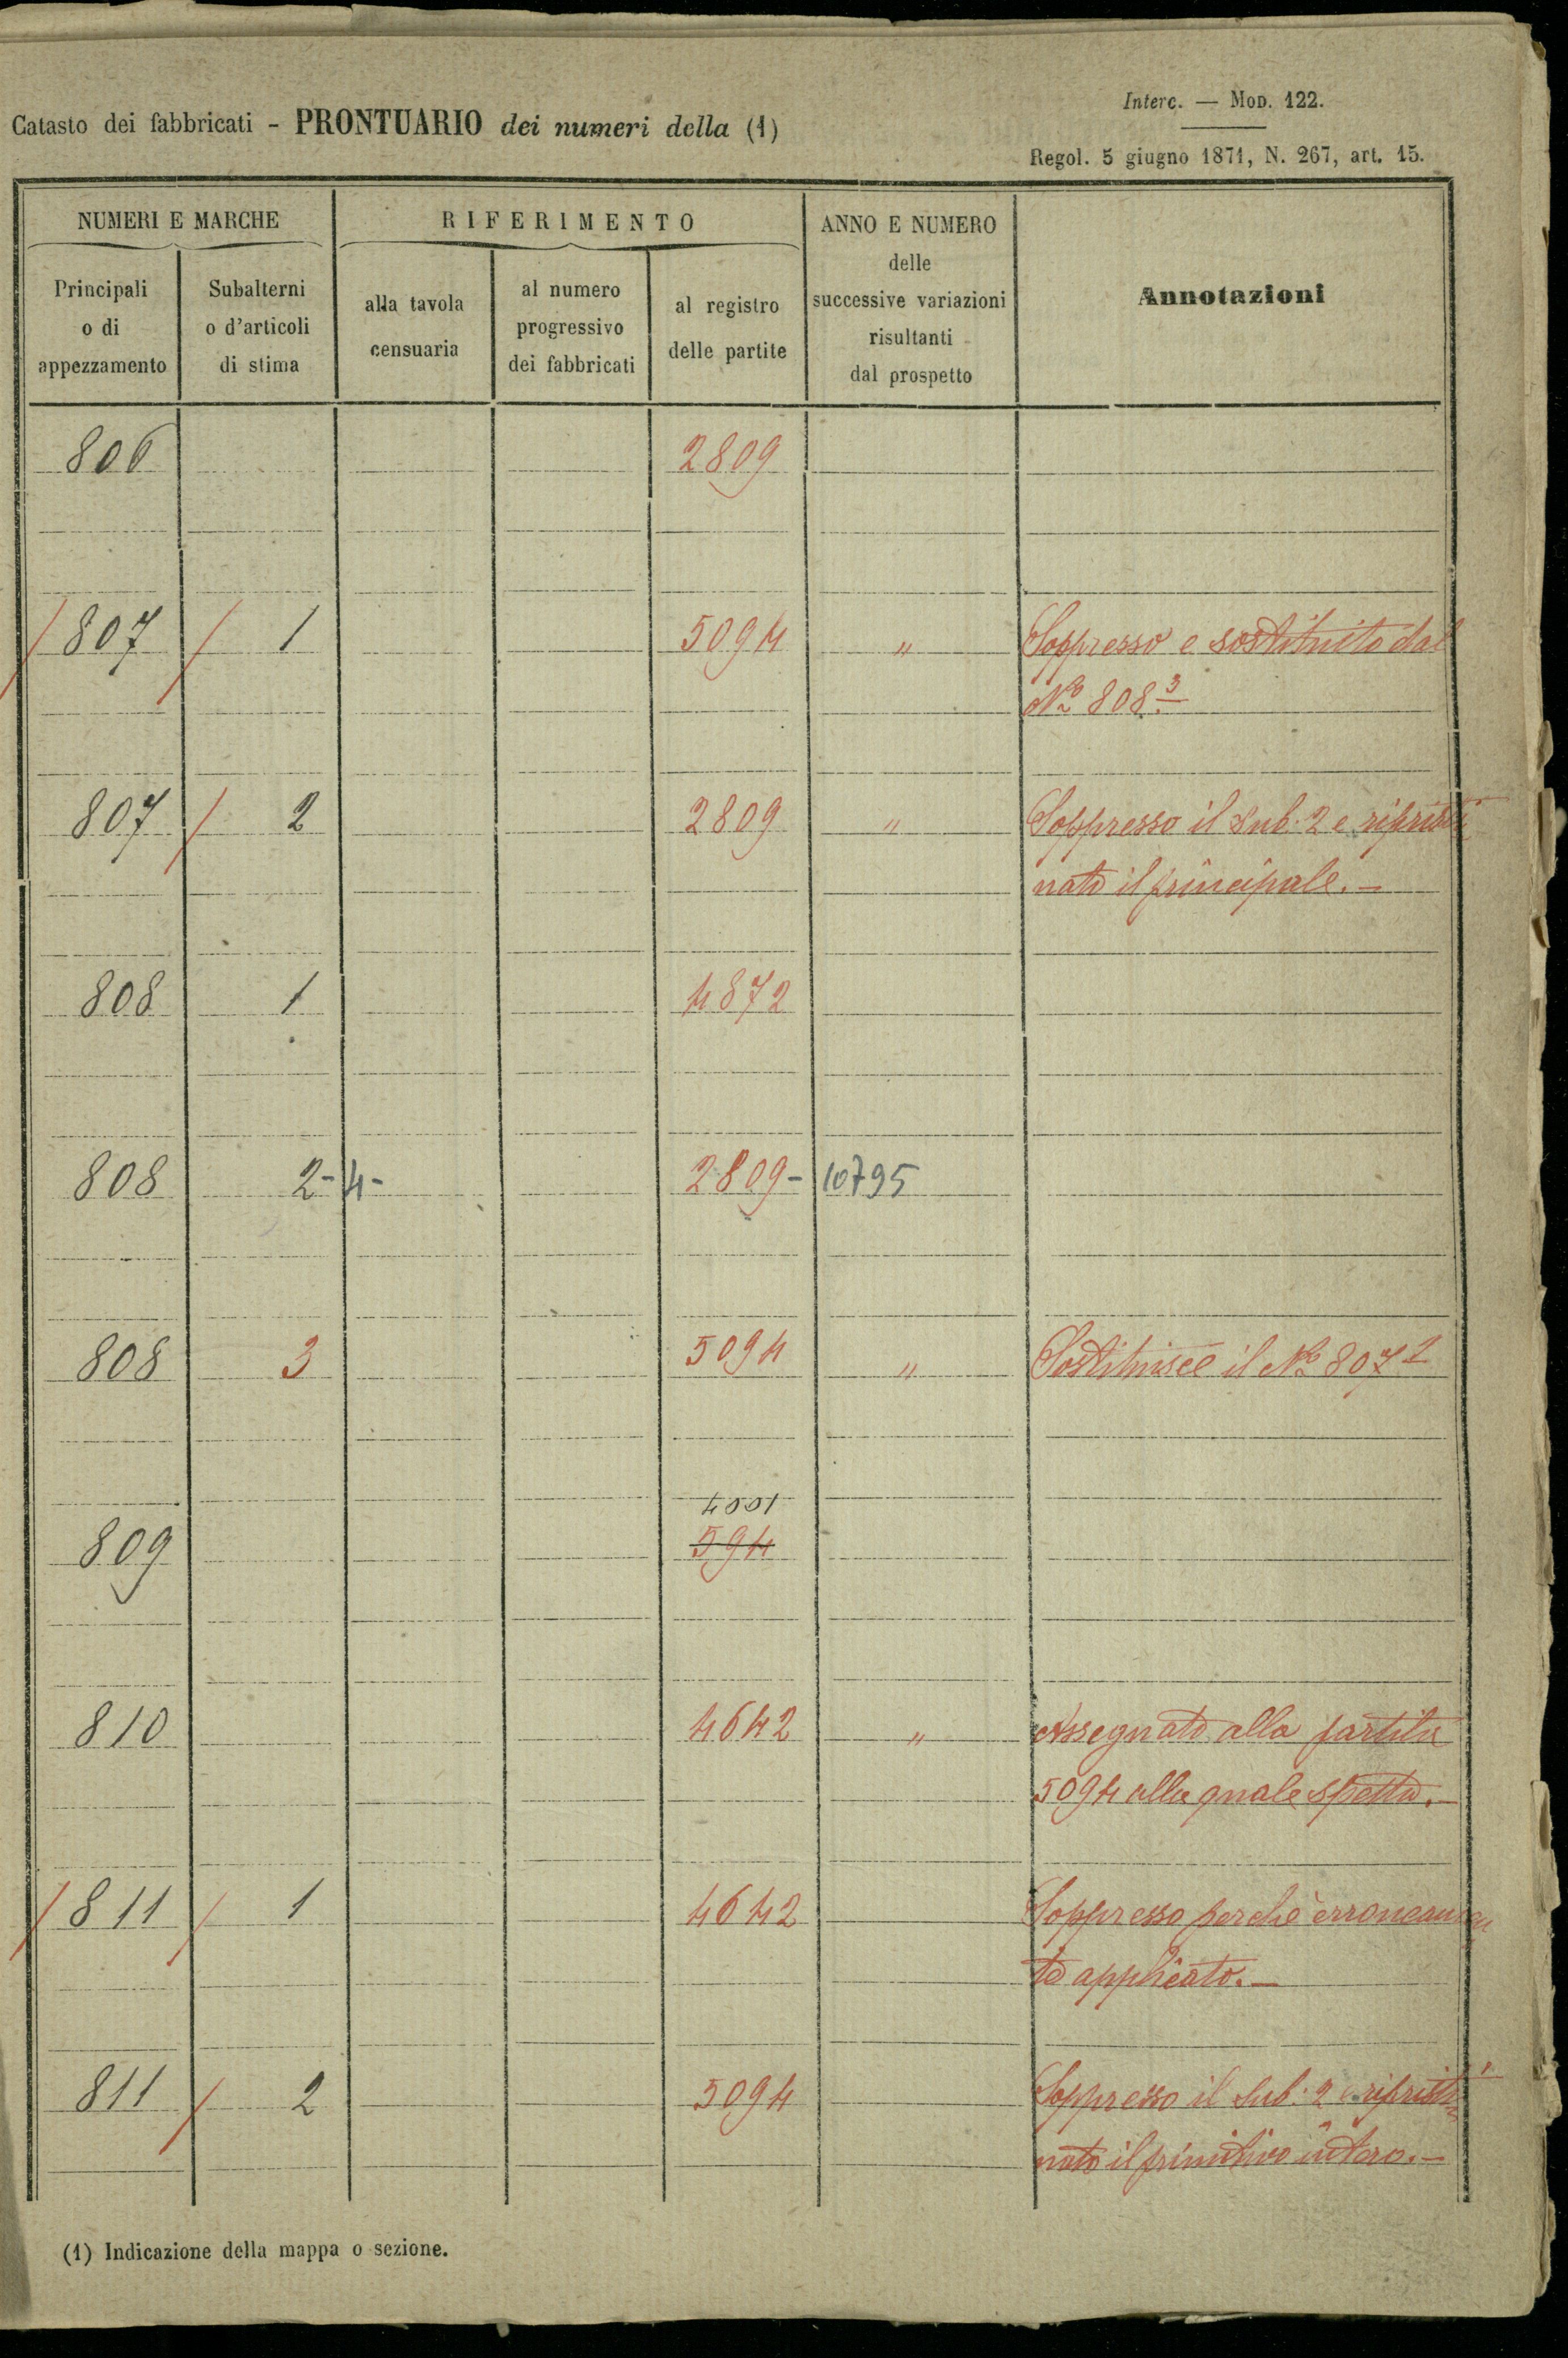 Interc. — Mod. 122.
Catasto dei fabbricati - PRONTUARIO dei numeri della (1)
Regol. 5 giugno 1871, N. 267, art. 15.
NUMERI E MARCHE
RIFERIMENTO
ANNO E NUMERO
delle
successive variazioni
risultanti
dal prospetto
Annotazioni
Principali
o di
appezzamento
Subalterni
o d'articoli
di stima
alla tavola
censuaria
al numero
progressivo
dei fabbricati
al registro
delle partite
806 2809
807 / 1 5094 " Soppresso e sostituito dal
No 808 3
807 / 2 2809 " Soppresso il Sub. 2 e ripristi
nato il principale. —
808 1 4872
808 2-4- 2809- 10795
808 3 5094 " Sostituisce il No 807 1
4001
809 594
810 4642 " Assegnato alla partita
5094 alla quale spetta. —
/ 811 / 1 4642 Soppresso perchè erroneamen
te applicato. —
811 / 2 5094 Soppresso il Sub. 2 e ripristi
nato il primitivo intero. —
(1) Indicazione della mappa o sezione.